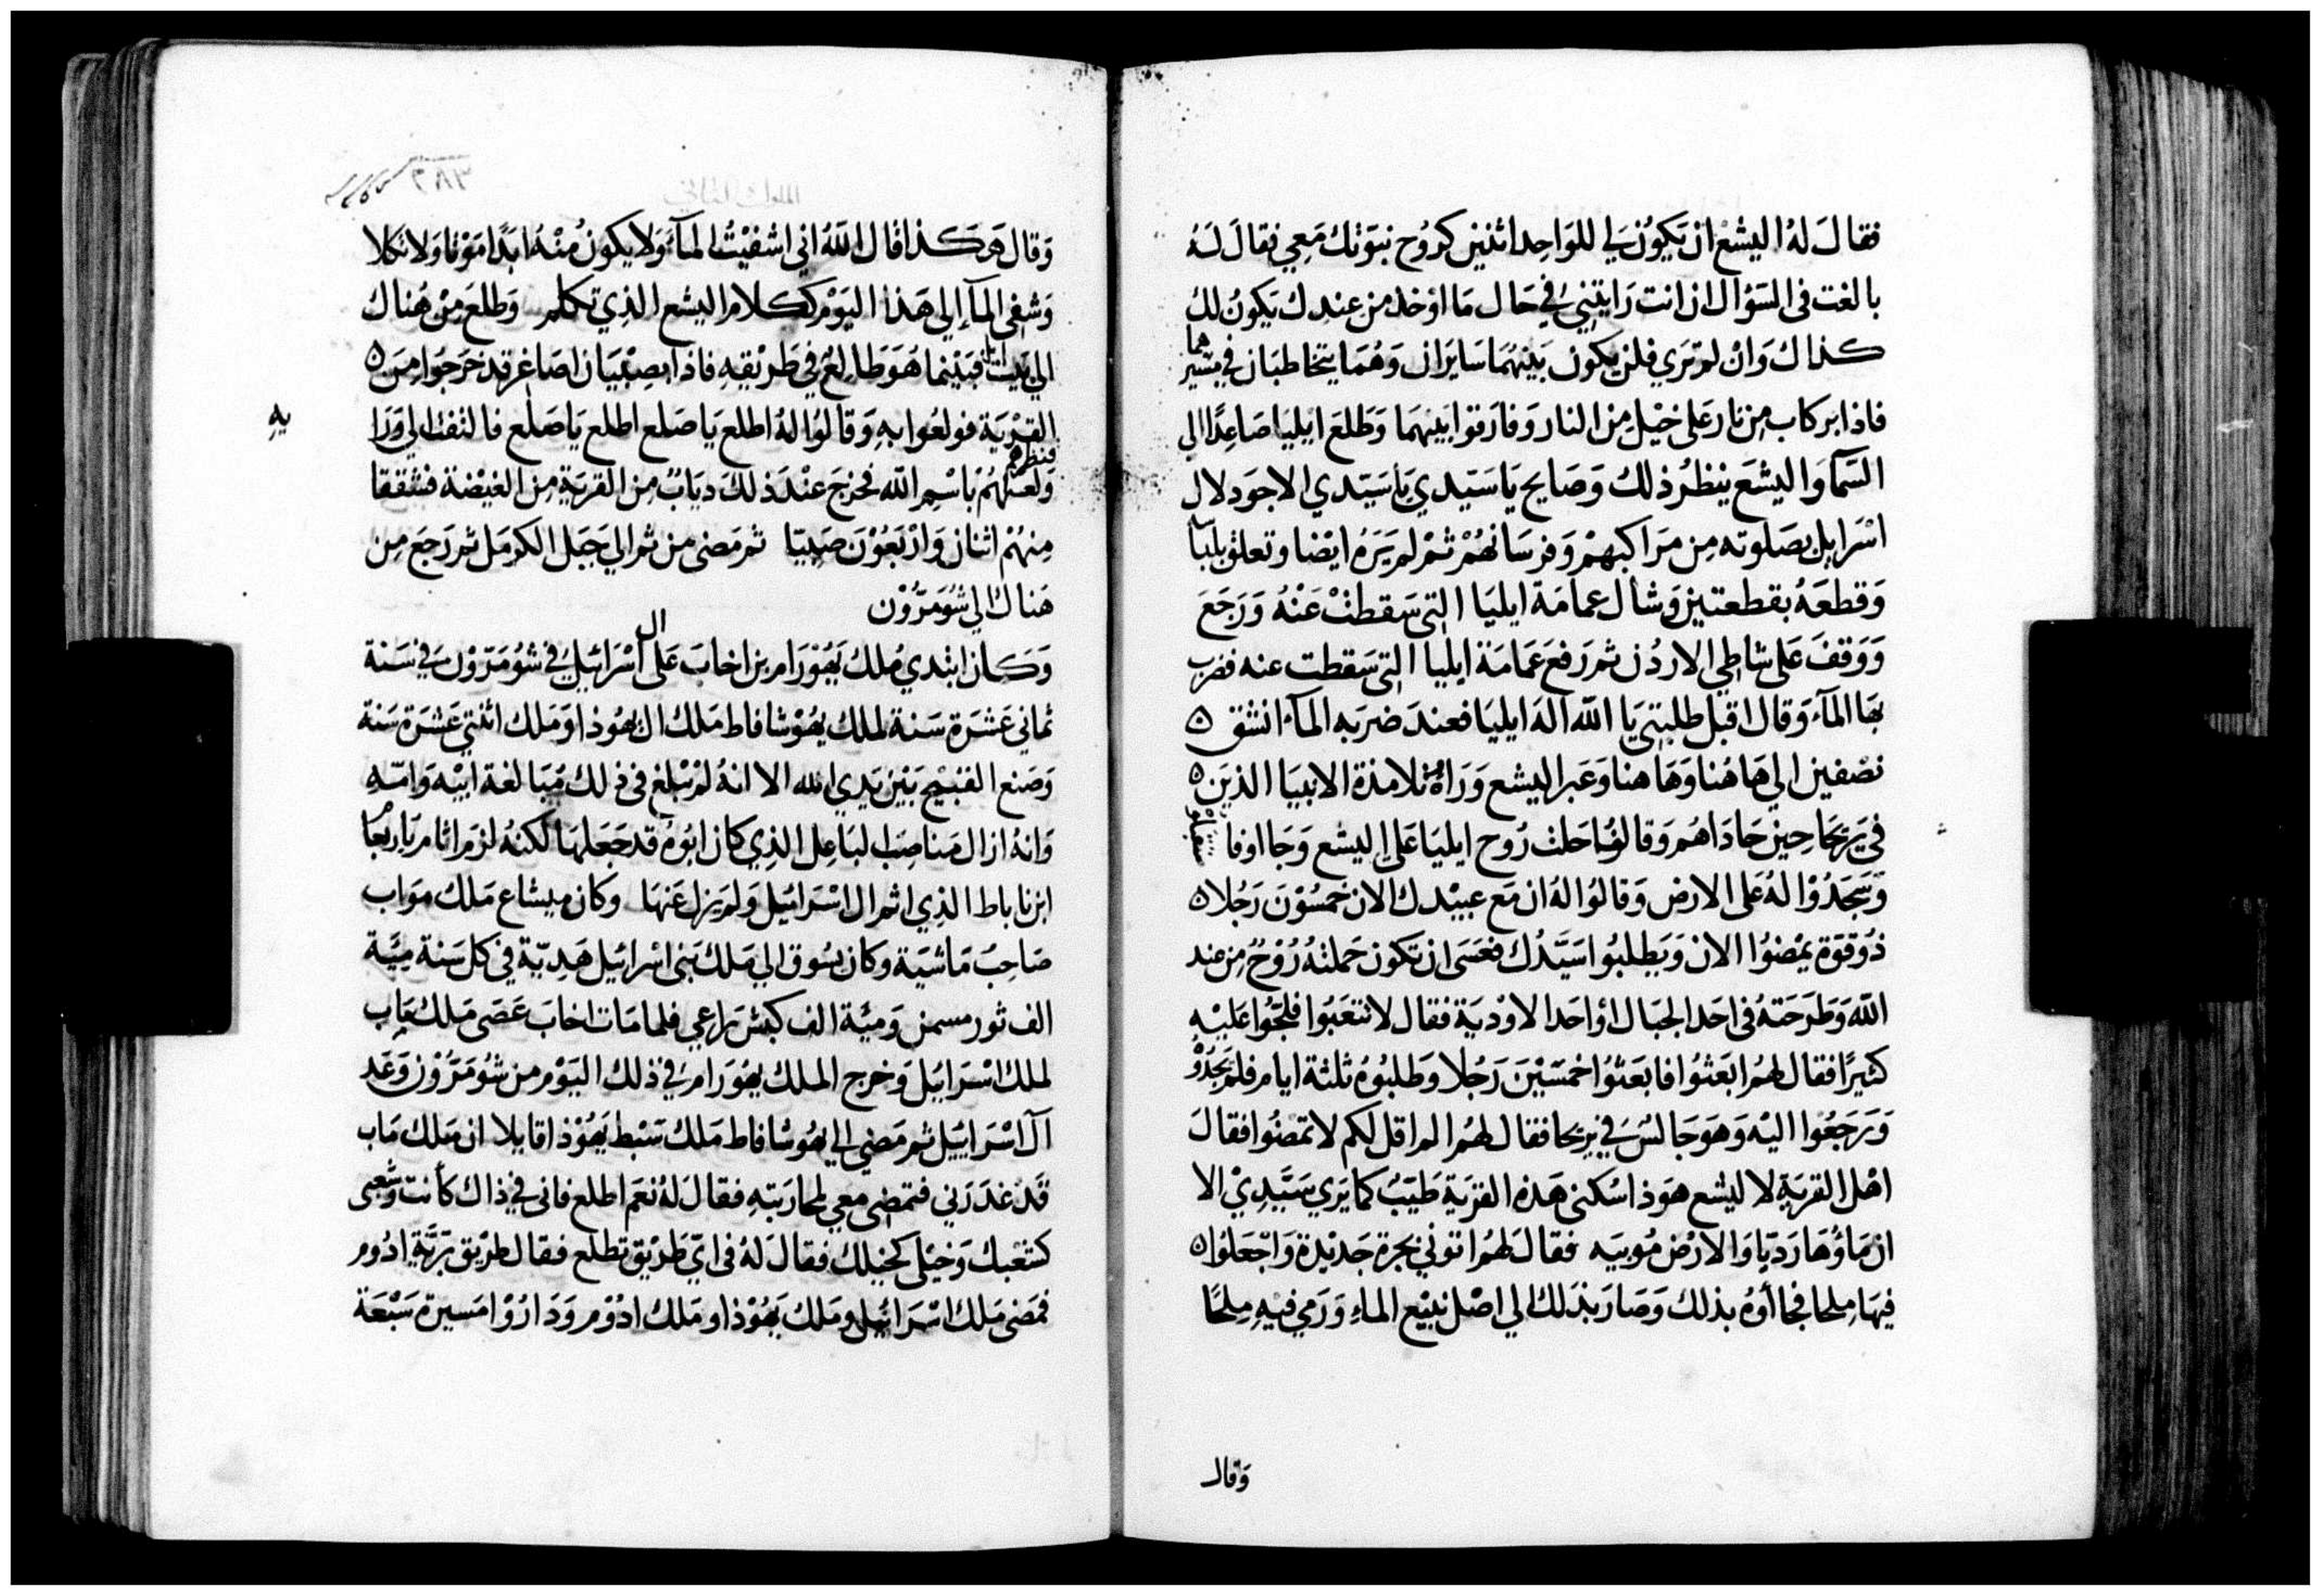 فقال له اليشع ان يكون لي للواحد اثنين كروح نبوتك معي فقال له
بالغت في السؤال ان انت رايتني في حال ما اوخذ من عندك يكون لك
كذاك وان لم تري فلن يكون بينهما سايران وهما يتخاطبان في مسيرهما
فاذا بركاب من نار على خيل من النار وفارقوا بينهما وطلع ايليا صاعدا الي
السمآ واليشع ينظر ذلك وصايح يا سيدي يا سيدي الاجود لال
اسرايل بصلوته من مراكبهم وفرسانهم ثم لم يره ايضا وتعلق
وقطعه بقطعتين وشال عمامة ايليا التي سقطت عنه ورجع
ووقف على شاطي الاردن ثم رفع عمامة ايليا التي سقطت عنه فضرب
بها المآء وقال اقبل طلبتي يا الله اله ايليا فعند ضربه المآء انشق ٥
نصفين الي هاهنا وهاهنا وعبر اليشع وراه تلامذة الانبيا الذين ٥
في يريحا حين حاداهم وقالوا حلت روح ايليا على اليشع وجا اوفا
وسجدوا له على الارض وقالوا له ان مع عبيدك الان خمسون رجلا ٥
ذو قوة يمضوا الان ويطلبوا سيدك فعسى ان تكون حملته روح من عند
الله وطرحته في احد الجبال او احد الاودية فقال لا تتعبوا فلجوا عليه
كثيرا فقال لهم ابعثوا فابعثوا خمسين رجلا وطلبوه ثلثة ايام فلم يجدو
ورجعوا اليه وهو جالس في يريحا فقال لهم الم اقل لكم لا تمضوا فقال
اهل القرية لاليشع هوذا سكنى هذه القرية طيب كما يري سيدي الا
ان ماؤها رديا والارض موبيه فقال لهم اتوني بجرة جديدة واجعلوا ٥
فيها ملحا فجاأوه بذلك وصار بذلك الي اصل نبيع الماء ورمي فيه ملحا
وقال
الملوك الثاني
وقال هوكذا قال الله اني اشفيت المآء ولا يكون منه ابدا موتا ولا ثكلا
وشفي المآء الي هذا اليوم ككلام اليشع الذي تكلم وطلع من هناك
الي بيت ايل فبينما هو طالع في طريقه فاذا بصبيان اصاغر قد خرجوا من ٥
القرية فولعوا به وقالوا له اطلع يا صلع اطلع يا صلع فالتفت الي ورا
فنظرهم
ولعنهم باسم الله فخرج عند ذلك دياب من القرية من الغيضة فشققا
يه
منهم اثنان واربعون صبيا ثم مضى من ثم الي جبل الكرمل ثم رجع من
هناك الي شومرون
وكان ابتدي ملك يهورام بن اخاب على ال اسرائيل في شومرون في سنة
ثماني عشرة سنة لملك يهوشافاط ملك ال يهوذا وملك اثنتي عشرة سنة
وصنع القبيح بين يدي الله الا انه لم يبلغ في ذلك مبالغة ابيه وامه
وانه ازال مناصب لباعل الذي كان ابوه قد جعلها لكنه لزم اثام ياربعام
ابن ناباط الذي اثم ال اسرائيل ولم يزل عنها وكان ميشاع ملك مواب
صاحب ماشية وكان يسوق الي ملك بني اسرائيل هدية في كل سنة مية
الف ثور مسمن ومية الف كبش راعي فلما مات اخاب عصى ملك ماب
لملك اسرايل وخرج الملك يهورام في ذلك اليوم من شومرون وعد
آل اسراييل ثم مضي الي يهوشافاط ملك سبط يهوذا قايلا ان ملك ماب
قد غدرني فتمضي معي لمحاربته فقال له نعم اطلع فاني في ذاك كأنت وشعبى
كشعبك وخيلى كخيلك فقال له في اي طريق تطلع فقال طريق برية ادوم
فمضى ملك اسرائيل وملك يهوذا وملك ادوم وداروا مسيرة سبعة